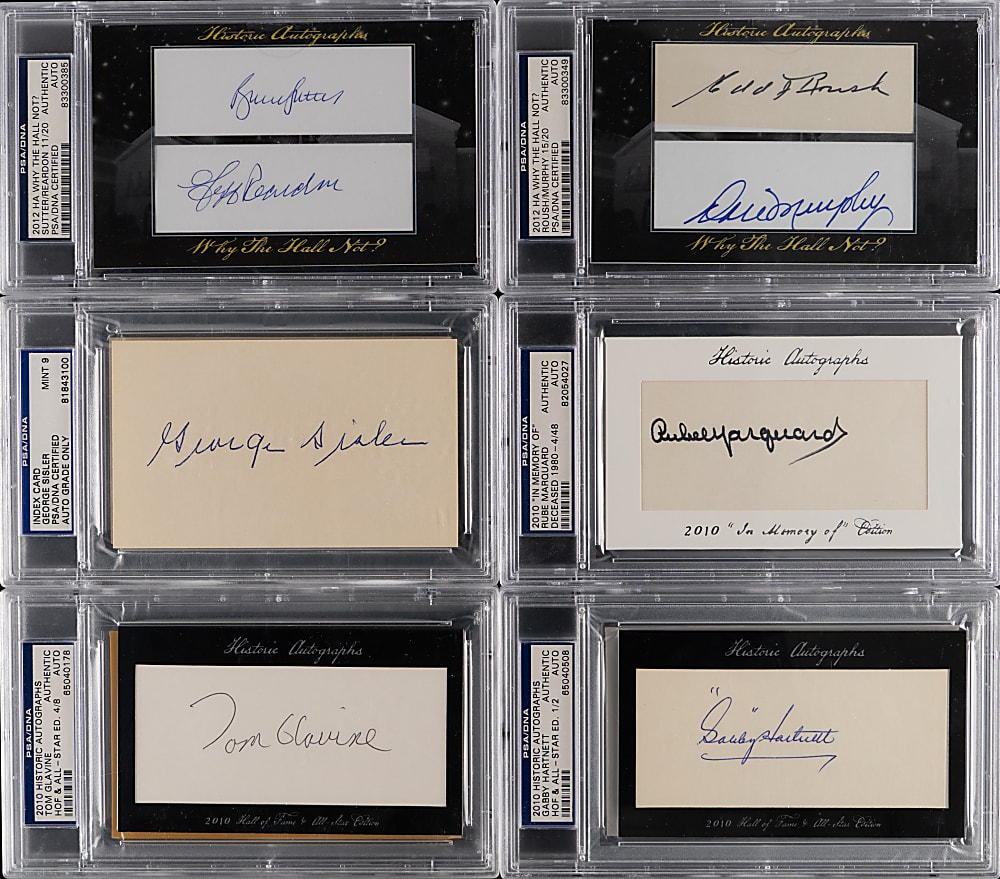 PSA/DNA
2012 HA WHY THE HALL NOT? AUTHENTIC
SUTTER/REARDON 11/20 AUTO
PSA/DNA CERTIFIED 83300385
Historic Autographs
Bruce Sutter
Jeff Reardon
Why The Hall Not?
PSA/DNA
2012 HA WHY THE HALL NOT? AUTHENTIC
ROUSH/MURPHY 15/20 AUTO
PSA/DNA CERTIFIED 83300349
Historic Autographs
Edd J Roush
Dale Murphy
Why The Hall Not?
PSA/DNA
INDEX CARD MINT 9
GEORGE SISLER
PSA/DNA CERTIFIED
AUTO GRADE ONLY 81843100
George Sisler
PSA/DNA
2010 "IN MEMORY OF" AUTHENTIC
RUBE MARQUARD AUTO
DECEASED 1980-4/48 82054027
Historic Autographs
Rube Marquard
2010 "In Memory of" Edition
PSA/DNA
2010 HISTORIC AUTOGRAPHS
TOM GLAVINE AUTHENTIC
HOF & ALL-STAR ED. 4/8 AUTO
65040178
Historic Autographs
Tom Glavine
2010 Hall of Fame & All-Star Edition
PSA/DNA
2010 HISTORIC AUTOGRAPHS
GABBY HARTNETT AUTHENTIC
HOF & ALL-STAR ED. 1/2 AUTO
65040508
Historic Autographs
"Gabby" Hartnett
2010 Hall of Fame & All-Star Edition